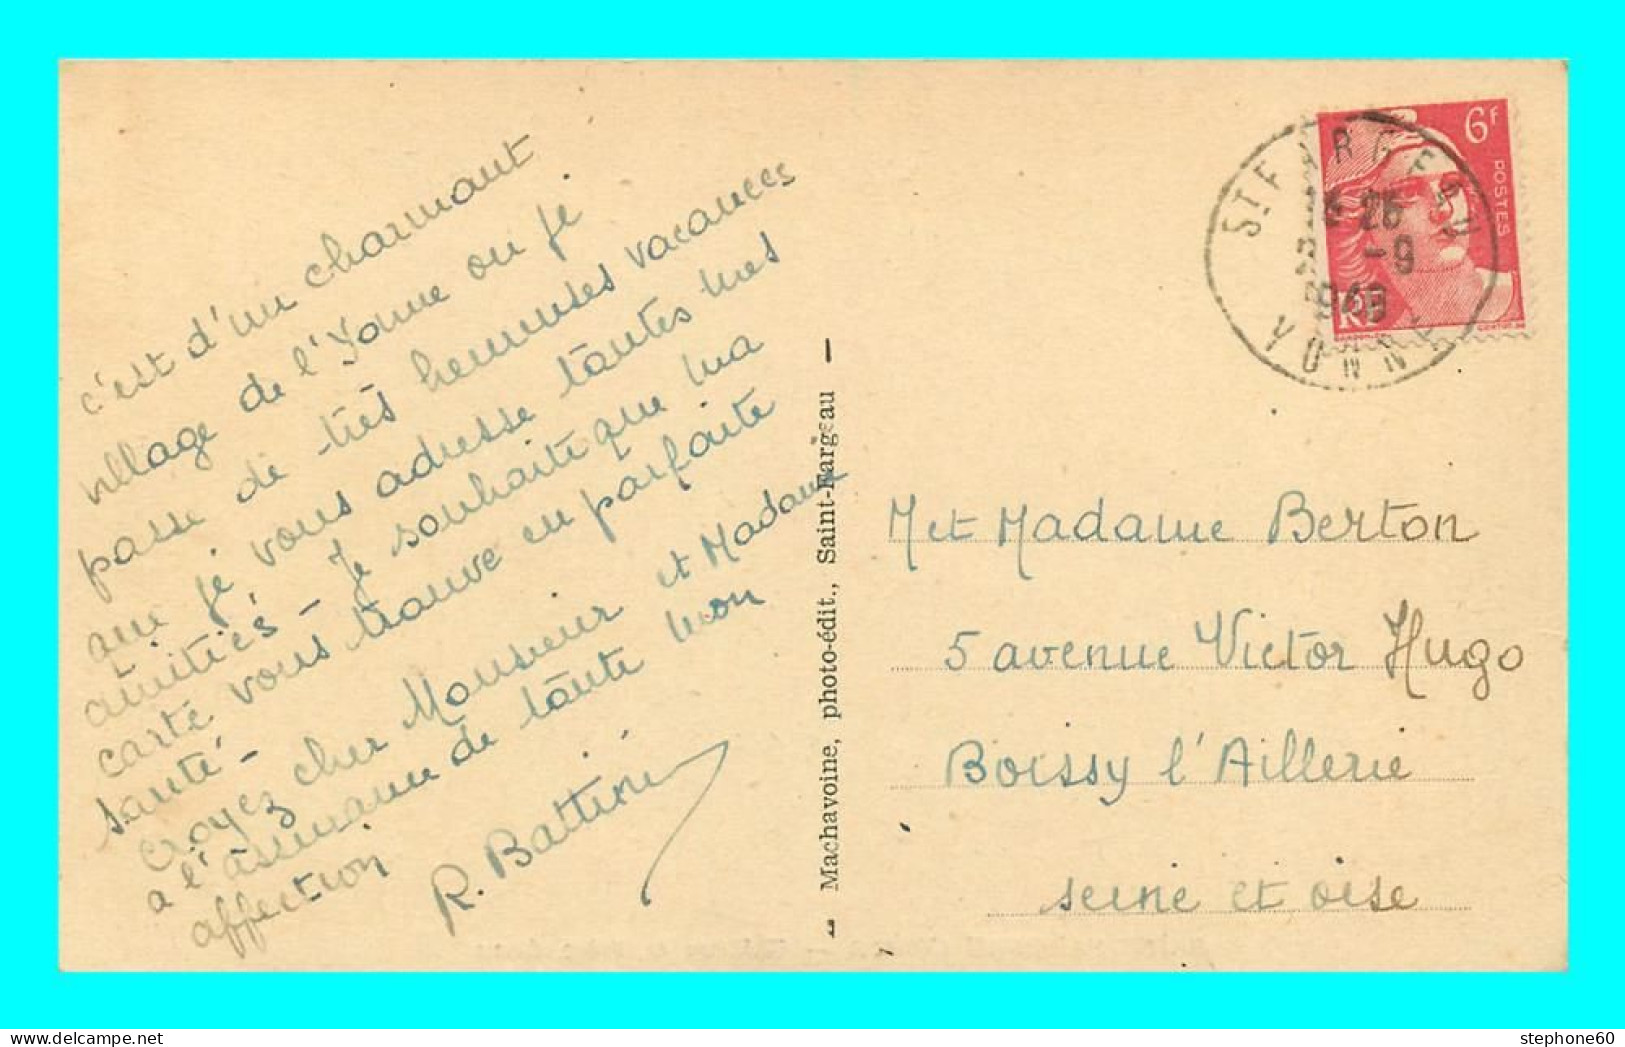 c'est d'un charmant
village de l'Yonne ou je
passe de très heureuses vacances
que je vous adresse toutes mes
amitiés - Je souhaite que ma
carte vous trouve en parfaite
santé -
Croyez cher Monsieur et Madame
a l'assurance de toute mon
affection
R. Battini
Machavoine, photo-édit., Saint-Fargeau
6F
POSTES
RF
ST FARGEAU
25
-9
YONNE
M et Madame Berton
5 avenue Victor Hugo
Boissy l'Aillerie
seine et oise
stephone60